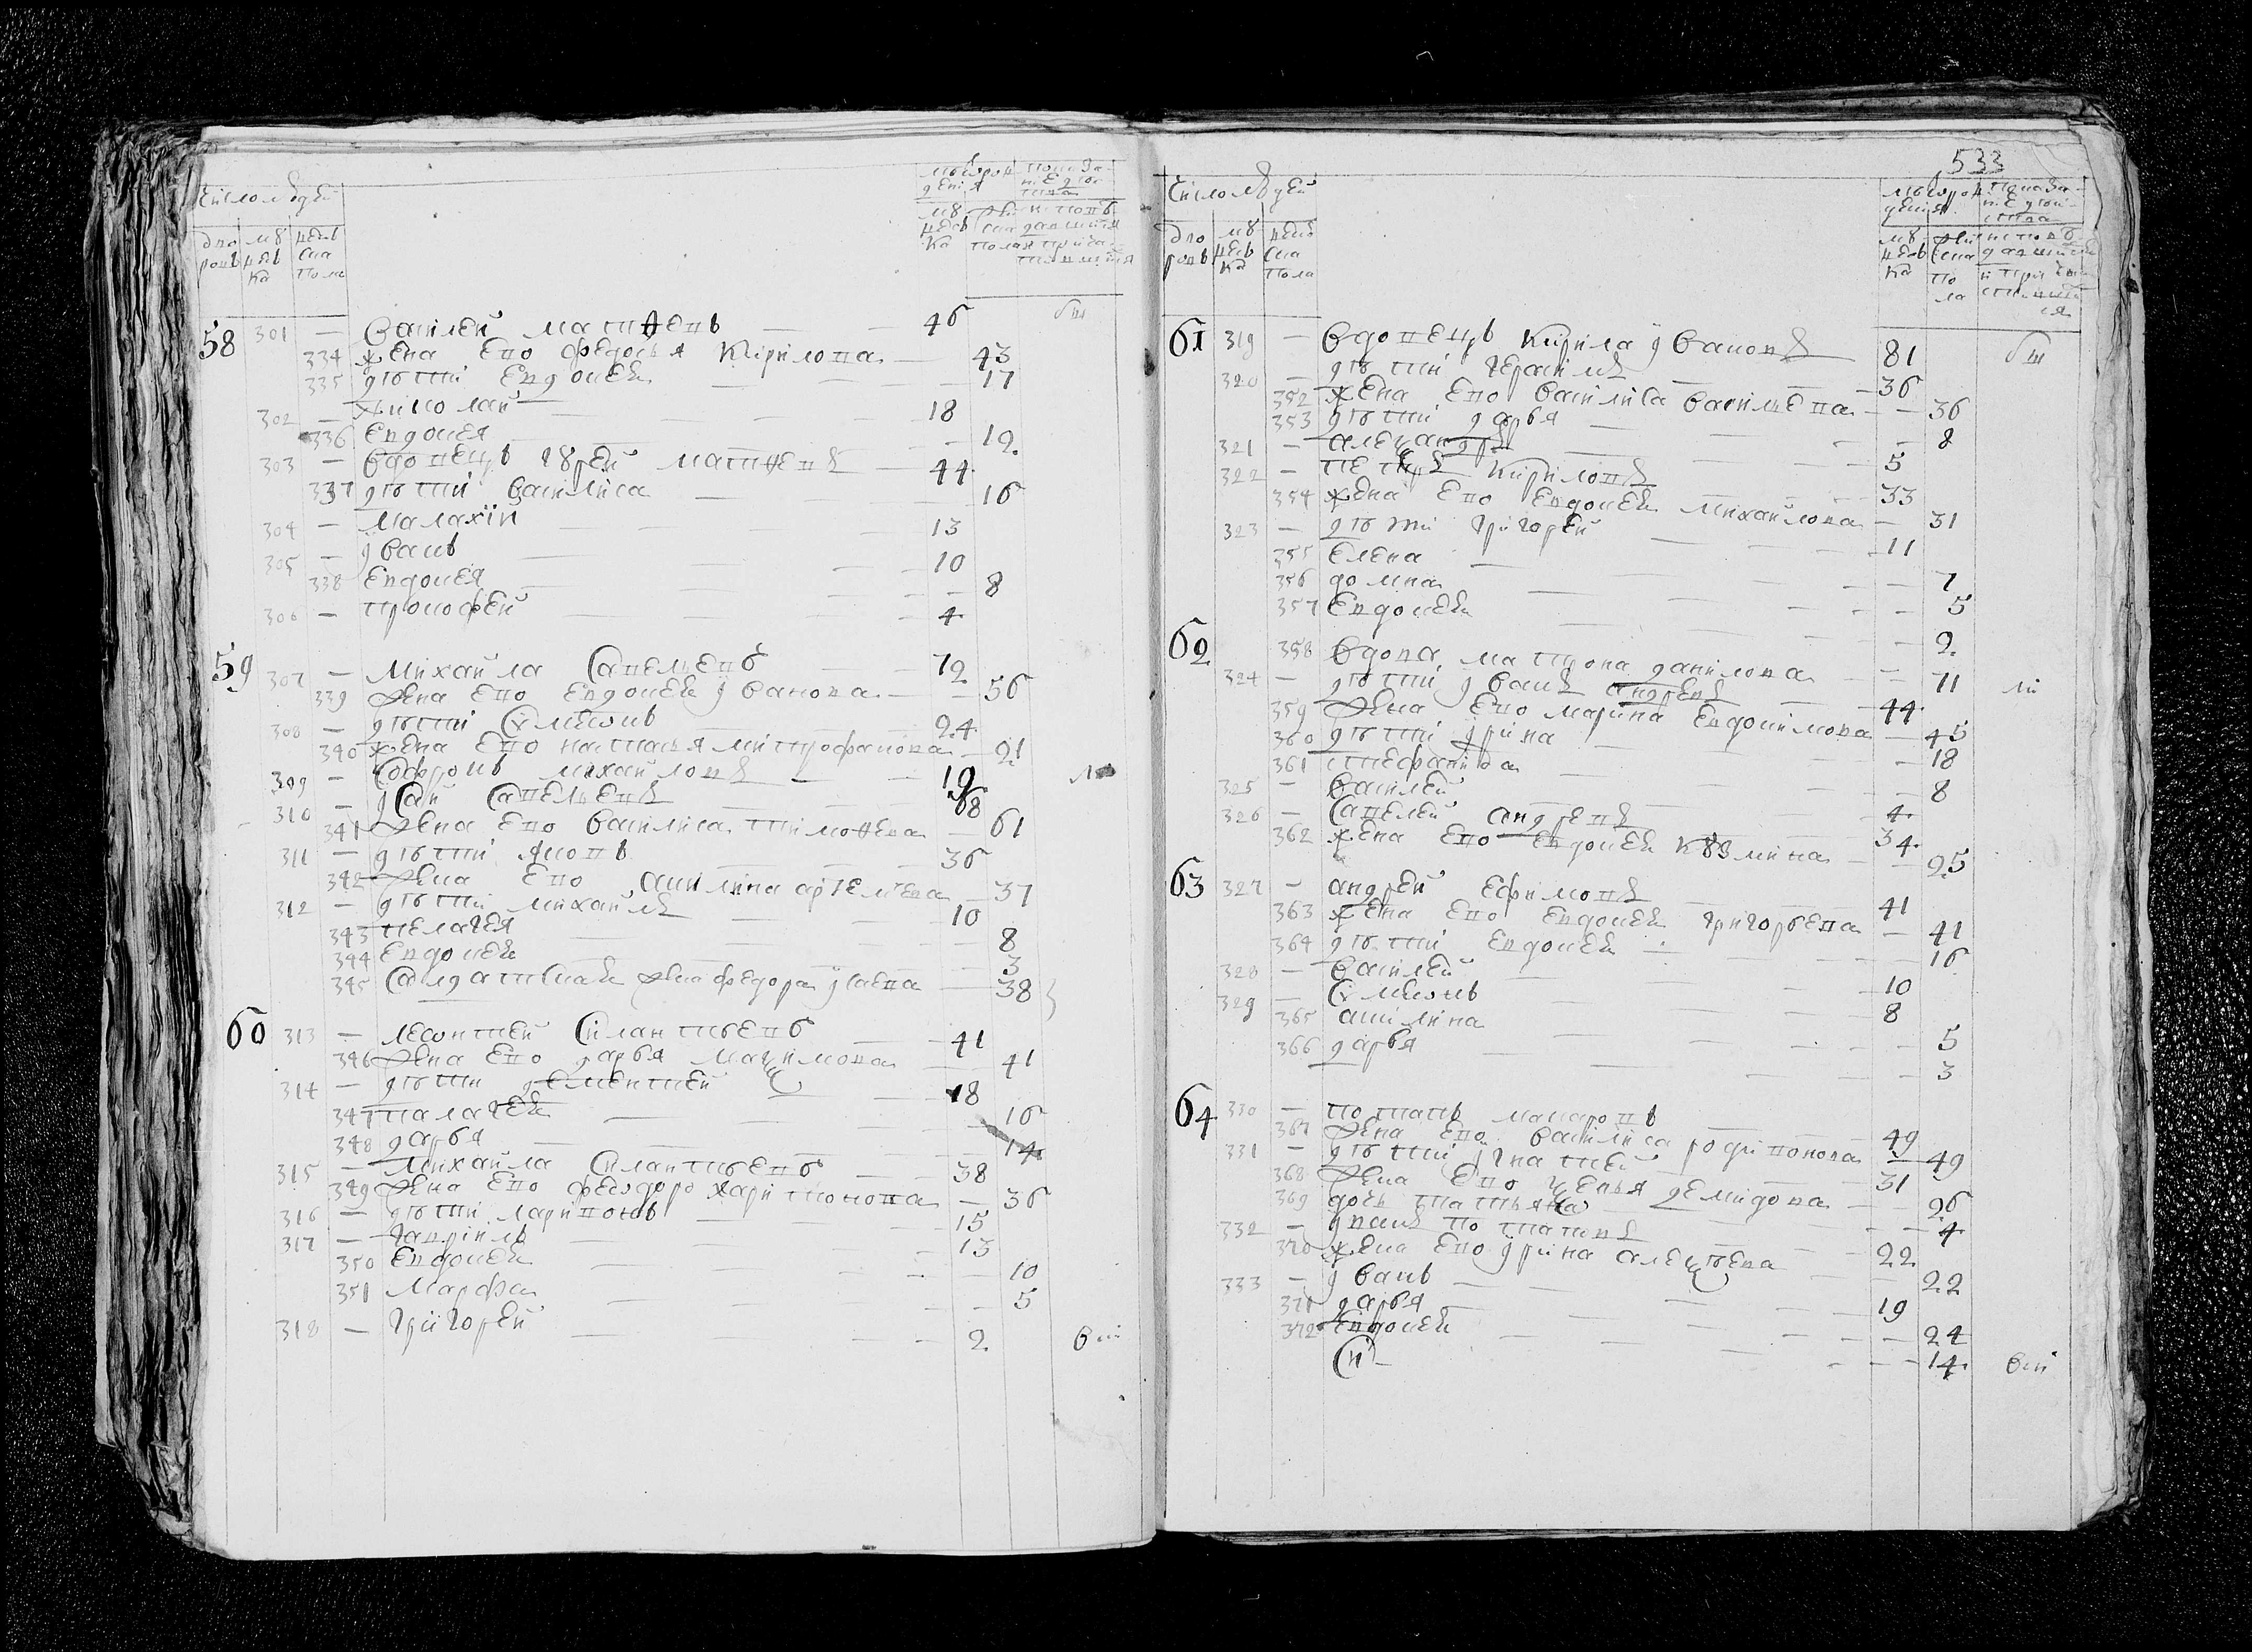 число людей
дворовъ
мужеска
женска пола
58 301 — Василей матѳеевъ — 46
334 жена ево федосья Кирилова — 43
335 дѣти Евдокея — 17
302 — николай — 18
336 Евдокея — 12
303 — вдовецъ Гурей матѳеевъ — 44
337 дѣти василиса — 16
304 — малахїи — 13
305 — јванъ — 10
338 Евдокея — 8
306 — прокофей — 4
59 307 — михайла савельевъ — 72
339 жена ево Евдокея јванова — 56
308 — дѣти Сѵмеѡнъ — 24
340 жена ево настасья митрофанова — 21
309 — Софронъ михайловъ — 19
310 — јсай савельевъ — 68
341 жена ево василиса тимоѳева — 61
311 — дѣти яковъ — 36
342 жена ево акилина артемьева — 37
312 — дѣти михайла — 10
343 пелагея — 8
344 Евдокея — 3
345 Салдатская жена федора јсаева — 38
60 313 — леѡнтей силантьевъ — 41
346 жена ево дарья маѯимова — 41
314 — дѣти дементей — 18
347 палагея — 16
348 дарья — 14
315 — михайла силантьевъ — 38
349 жена ево феѡдора харитонова — 36
316 — дѣти ларивонъ — 15
317 — гаврилъ — 13
350 Евдокея — 10
351 марфа — 5
318 — григорей — 2
533
число людей
дворовъ
мужеска
женска пола
61 319 — вдовецъ Кирила јвановъ — 81
320 — дѣти герасимъ — 36
352 жена ево василиса васильева — 36
353 дѣти дарья — 8
321 — алеѯандръ — 5
322 — петръ Кириловъ — 33
354 жена ево Евдокея михайлова — 31
323 — дѣти григорей — 11
355 Елена — 7
356 домна — 5
357 Евдокея — 2
62 358 вдова матрона данилова — 71
324 — дѣти јванъ андреевъ — 44
359 жена ево марина Евдокимова — 45
360 дѣти јрина — 18
361 стефанида — 8
325 — василей — 4
326 — савелей андреевъ — 34
362 жена ево Евдокея Кузмина — 25
63 327 — андрей Ефимовъ — 41
363 жена ево Евдокея григорьева — 41
364 дѣти Евдокея — 16
328 — василей — 10
329 — Сѵмеѡнъ — 8
365 акилина — 5
366 дарья — 3
64 330 — потапъ макаровъ — 49
367 жена ево василиса родивонова — 49
331 — дѣти јгнатей — 31
368 жена ево ѯенья демидова — 26
369 дочь татьяна — 4
332 — јванъ потаповъ — 22
370 жена ево јрина алеѯѣева — 22
333 — јванъ — 19
371 дарья — 24
372 Евдокея — 14